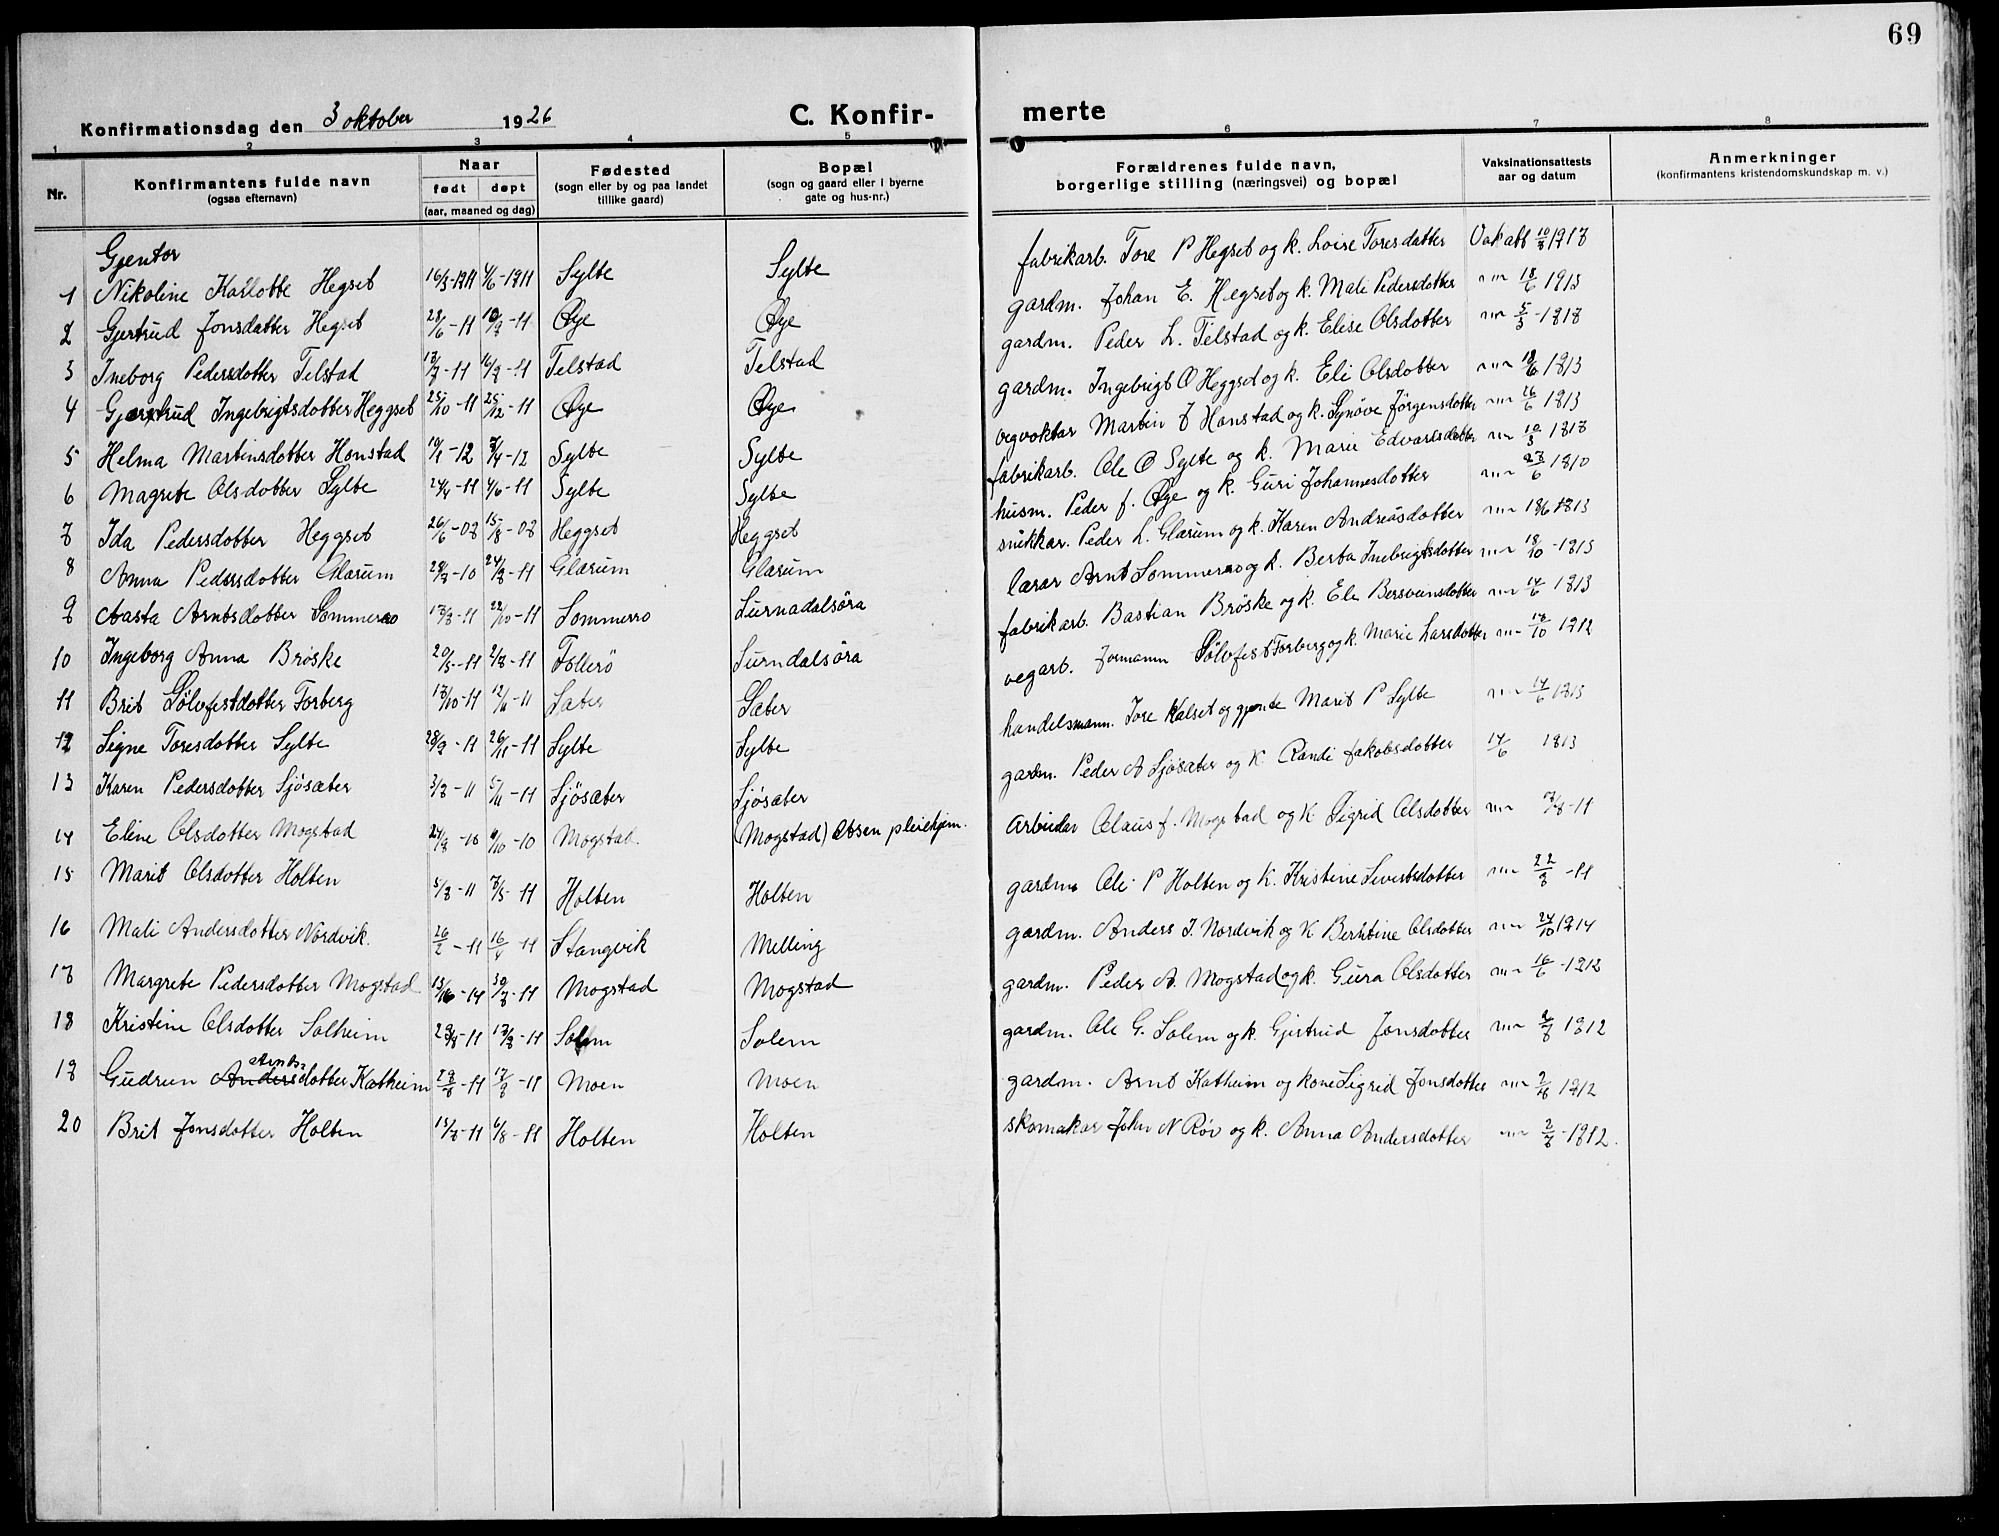 69
Konfirmationsdag den 3 oktober 1926 C. Konfir- merte
1 2 3 4 5 6 7 8
Nr. Konfirmantens fulde navn (ogsaa efternavn) Naar født døpt (aar, maaned og dag) Fødested (sogn eller by og paa landet tillike gaard) Bopæl (sogn og gaard eller i byerne gate og hus-nr.) Forældrenes fulde navn, borgerlige stilling (næringsvei) og bopæl Vaksinationsattests aar og datum Anmerkninger (konfirmantens kristendomskundskap m. v.)
Gjentor
1 Nikoline Karlotte Hegset 16/3-1911 4/6-1911 Sylte Sylte fabrikarb. Tore P Hegset og k. Loise Toresdatter Vak att 10/3 1917
2 Gjertrud Jonsdatter Hegset 28/6-11 10/9-11 Øye Øye gardm. Johan E. Hegset og k. Mali Pedersdotter 18/6 1913
3 Ineborg Pedersdotter Telstad -11 -11 Telstad Telstad gardm. Peder L. Telstad og k. Elise Olsdotter
4 Gjertrud Ingebrigtsdotter Heggset 25/10-11 25/12-11 Øye Øye gardm. Ingebrigt O Heggset og k. Eli Olsdotter 1913
5 Helma Martinsdotter Honstad -12 -12 Sylte Sylte vegvoktar Martin J Honstad og k. Synöve Jörgensdotter 26/6 1913
6 Magrete Olsdotter Sylte 24/4-11 4/6-11 Sylte Sylte fabrikarb. Ole O Sylte og k. Marie Edvardsdotter 10/3 1917
7 Ida Pedersdotter Heggset 26/6-09 15/8-09 Heggset Heggset husm. Peder J. Øye og k. Guri Johannesdotter 1910
8 Anna Pedersdotter Glærum -10 -11 Glærum Glærum snikkar. Peder L. Glærum og k. Karen Andreasdotter 18/6 1913
9 Aasta Arntsdotter Sommerro -11 22/10-11 Sommerro Surnadalsöra lærar Arnt Sommerro og k. Berta Inebrigtsdotter 18/10-1915
10 Ingeborg Anna Brøske 20/5-11 2/8-11 Follerö Surndalsöra fabrikarb. Bastian Brøske og k. Eli Bersveinsdotter 14/6 1913
11 Brit Sölvfestdotter Torberg 17/10-11 12/6-11 Sæter Sæter vegarb. formann Sölvfest Torberg og k. Marie Larsdotter 1912
12 Signe Toresdotter Sylte 28/9-11 26/11-11 Sylte Sylte handelsmann. Tore Kalset og gjente Marit P Sylte 14/6 1913
13 Karen Pedersdotter Sjösæter -11 5/11-11 Sjösæter Sjösæter gardm. Peder A Sjösæter og K Randi Jakobsdotter 14/6 1913
14 Eline Olsdotter Mogstad -10 9/10-10 Mogstad. (Mogstad) Olsen pleiehjem. Arbeidar Olaus J. Mogstad og K Sigrid Olsdotter -11
15 Marit Olsdotter Holten -11 7/5-11 Holten Holten gardm Ole P Holten og K. Kristine Sivertsdotter -11
16 Mali Andersdotter Nordvik. 26/2-11 16/4-11 Stangvik Melling gardm. Anders I. Nordvik og K Bertine Olsdotter 24/10 1914
17 Margrete Pedersdotter Mogstad -11 Mogstad Mogstad gardm. Peder A. Mogstad og k. Gura Olsdotter 16/6-1912
18 Kristine Olsdotter Solheim -11 -11 Solem Solem gardm. Ole G. Solem og k. Gjertrud Jonsdotter 1912
19 Gudrun Anders Arnts dotter Kattheim -11 -11 Moen Moen gardm. Arnt Kattheim og kone Sigrid Jonsdotter 1912
20 Brit Jonsdotter Holten -11 6/8-11 Holten Holten skomakar John N Röv og k. Anna Andersdotter 1912.